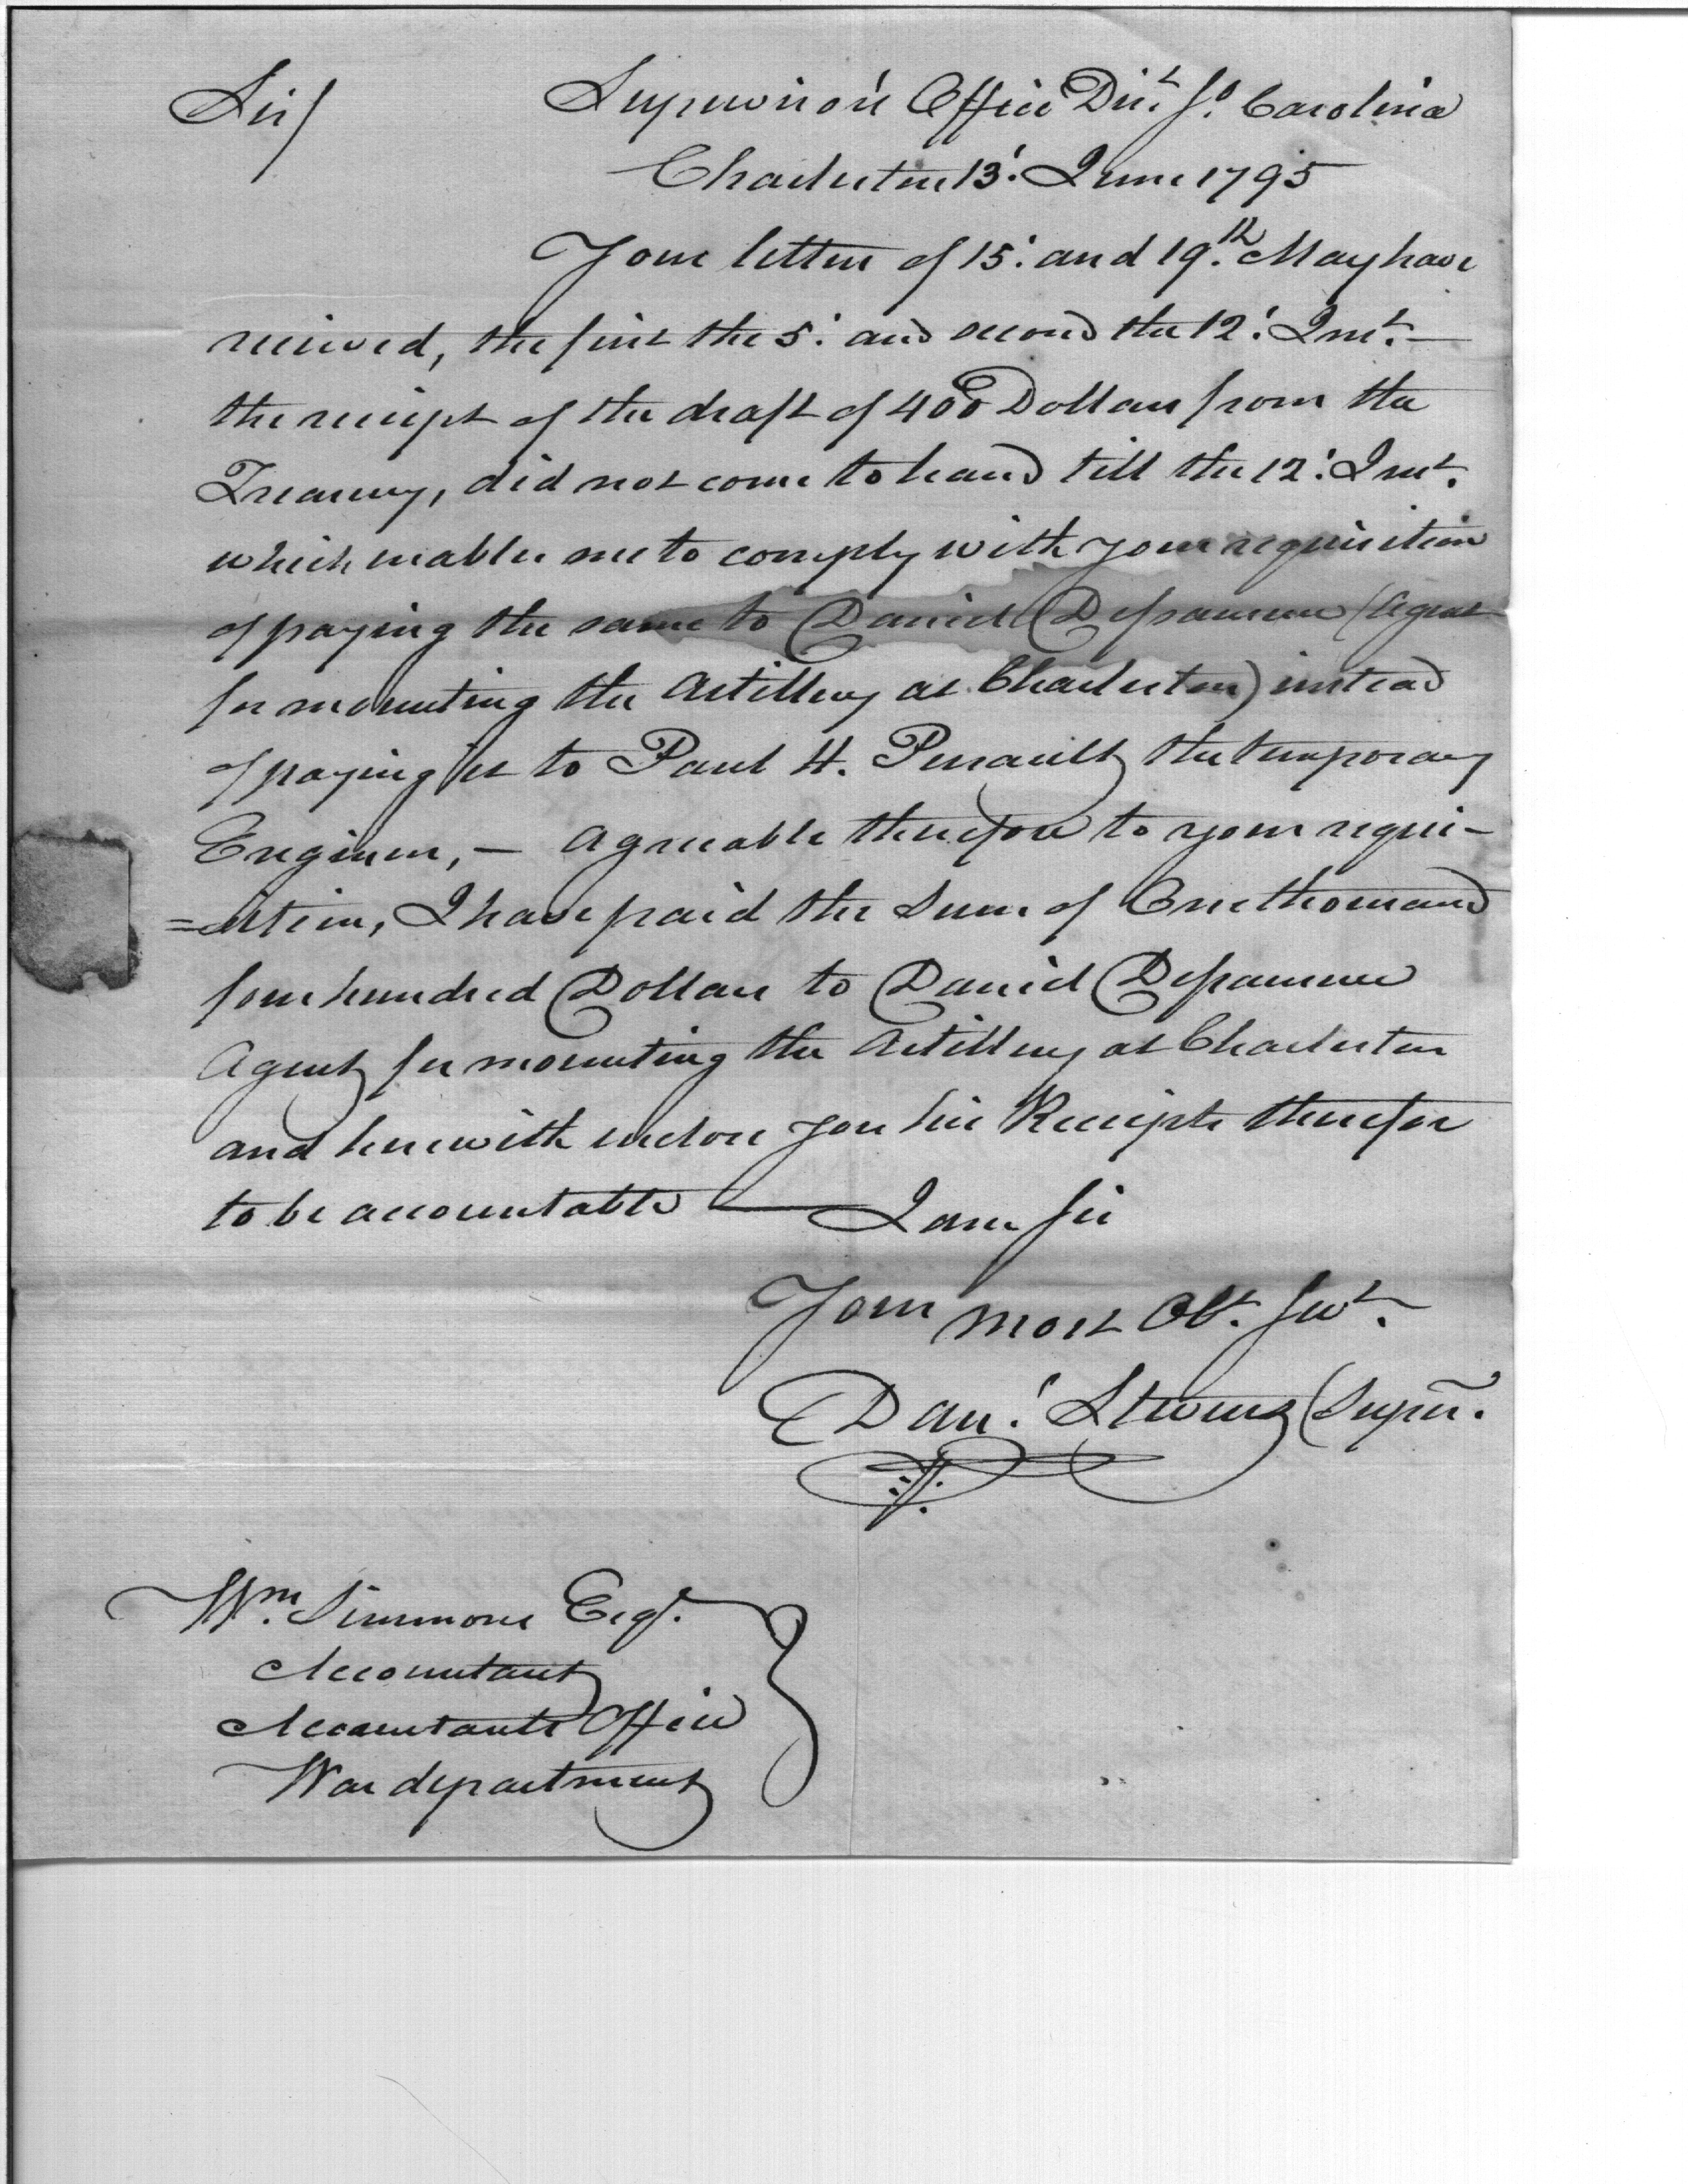 Sir/ Supervisor's Office Dist. So. Carolina
Charleston 13' June 1795
Your letters of 15' and 19th. May have
received, the first the 5' and second the 12' Inst. —
the receipt of the draft of 400 Dollars from the
Treasury, did not come to hand till the 12' Inst.
which enables me to comply with your requisition
of paying the same to Daniel Dessaussure (Agent
for mounting the Artillery at Charleston) instead
of paying it to Paul H. Perrault the temporary
Engineer, — Agreeable therefore to your requi-
=sition, I have paid the Sum of One thousand
four hundred Dollars to Daniel Dessaussure
Agent for mounting the Artillery at Charleston
and herewith enclose you his Receipts therefor
to be accountable — I am Sir
Your most Obt. Servt.
Danl. Stevens Supr.
Wm. Simmons Esqr.
Accountant
Accountants Office
War department